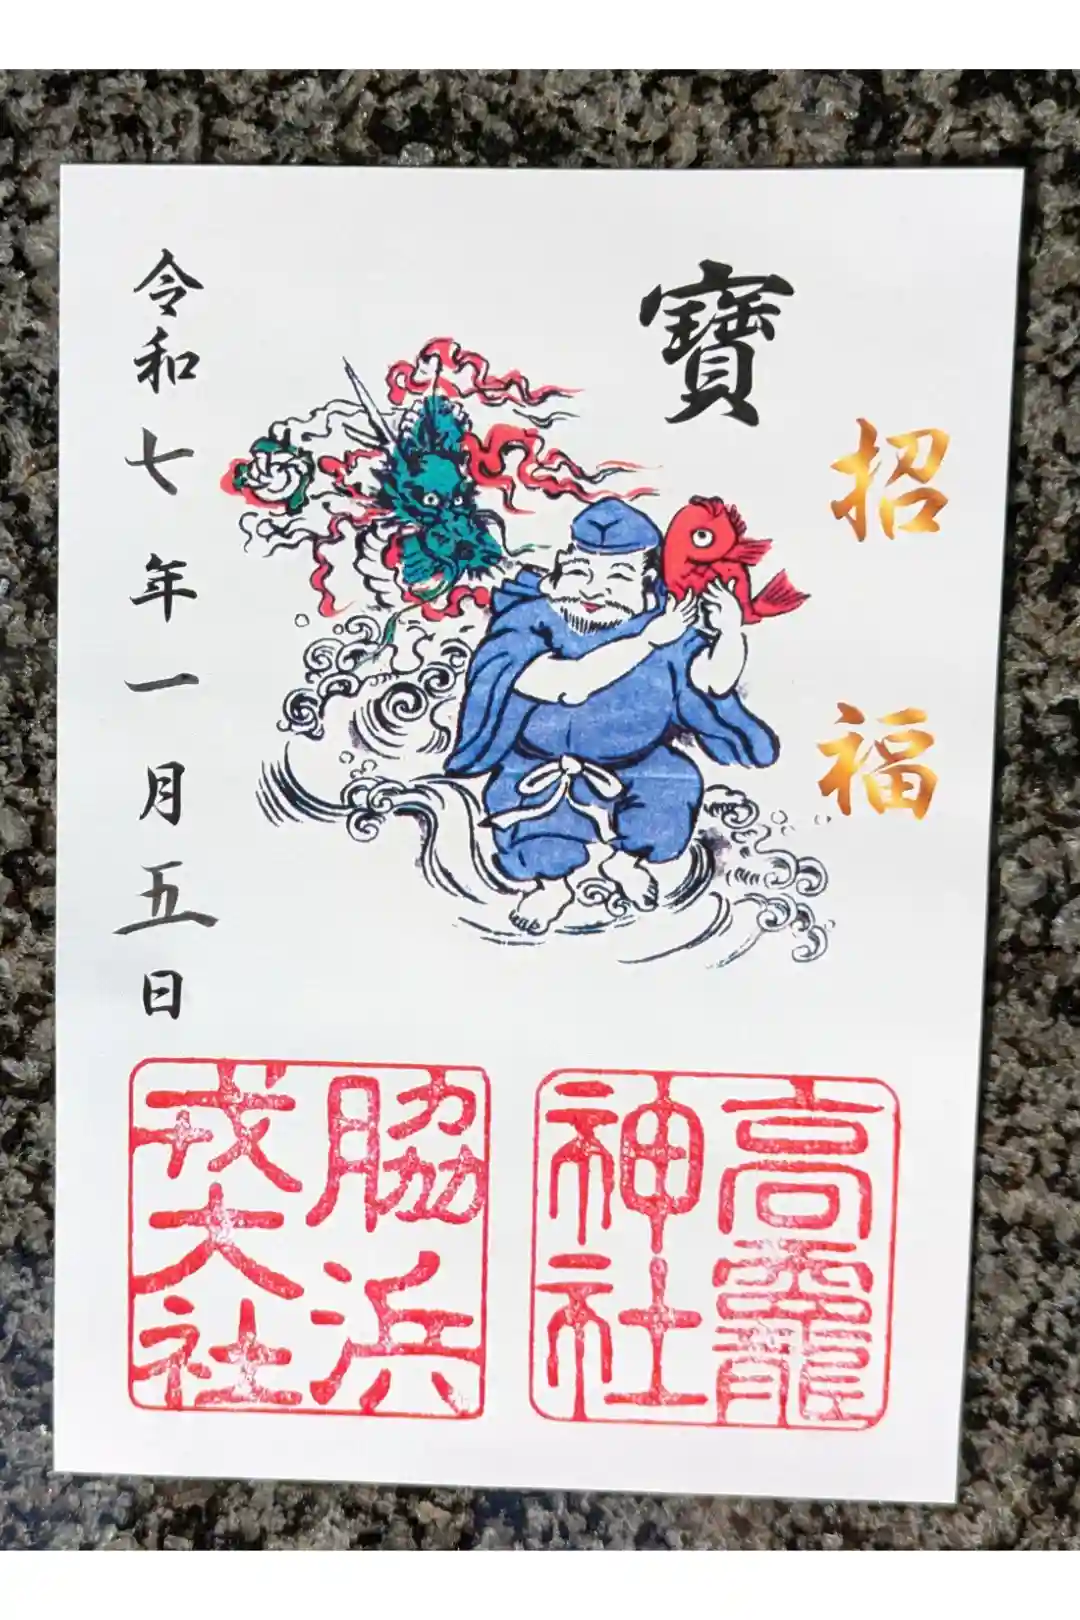 寶
招福
令和七年一月五日
高龗神社
脇浜戎大社